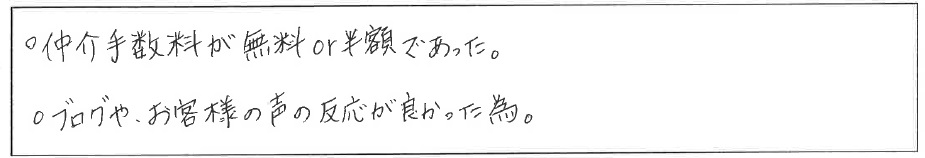 ○仲介手数料が無料or半額であった。
○ブログや、お客様の声の反応が良かった為。